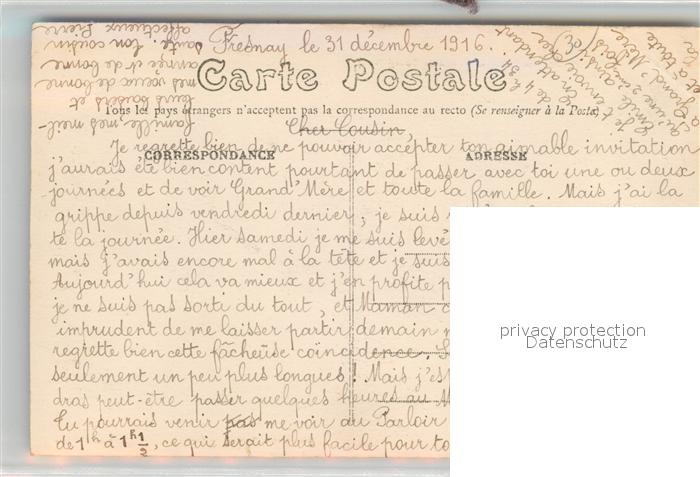 Fresnay le 31 décembre 1916.
Carte Postale
Tous les pays étrangers n'acceptent pas la correspondance au recto (Se renseigner à la Poste)
Cher Cousin,
CORRESPONDANCE
ADRESSE
Je regrette bien de ne pouvoir accepter ton aimable invitation
j'aurais été bien content pourtant de passer avec toi une ou deux
journées et de voir Grand'Mère et toute la famille. Mais j'ai la
grippe depuis vendredi dernier, je suis
te la journée. Hier samedi je me suis levé
mais j'avais encore mal à la tête et je suis
Aujourd'hui cela va mieux et j'en profite
je ne suis pas sorti du tout, et Maman
imprudent de me laisser partir demain
regrette bien cette fâcheuse coïncidence.
seulement un peu plus longues! Mais
dras peut-être passer quelques heures au
Tu pourrais venir pas me voir au Parloir
de 1h à 1h 1/2, ce qui serait plus facile pour
famille, mes meil-
leurs baisers et
mes vœux de bonne
année et de bonne
santé. Ton cousin
affectueux Pierre
privacy protection
Datenschutz